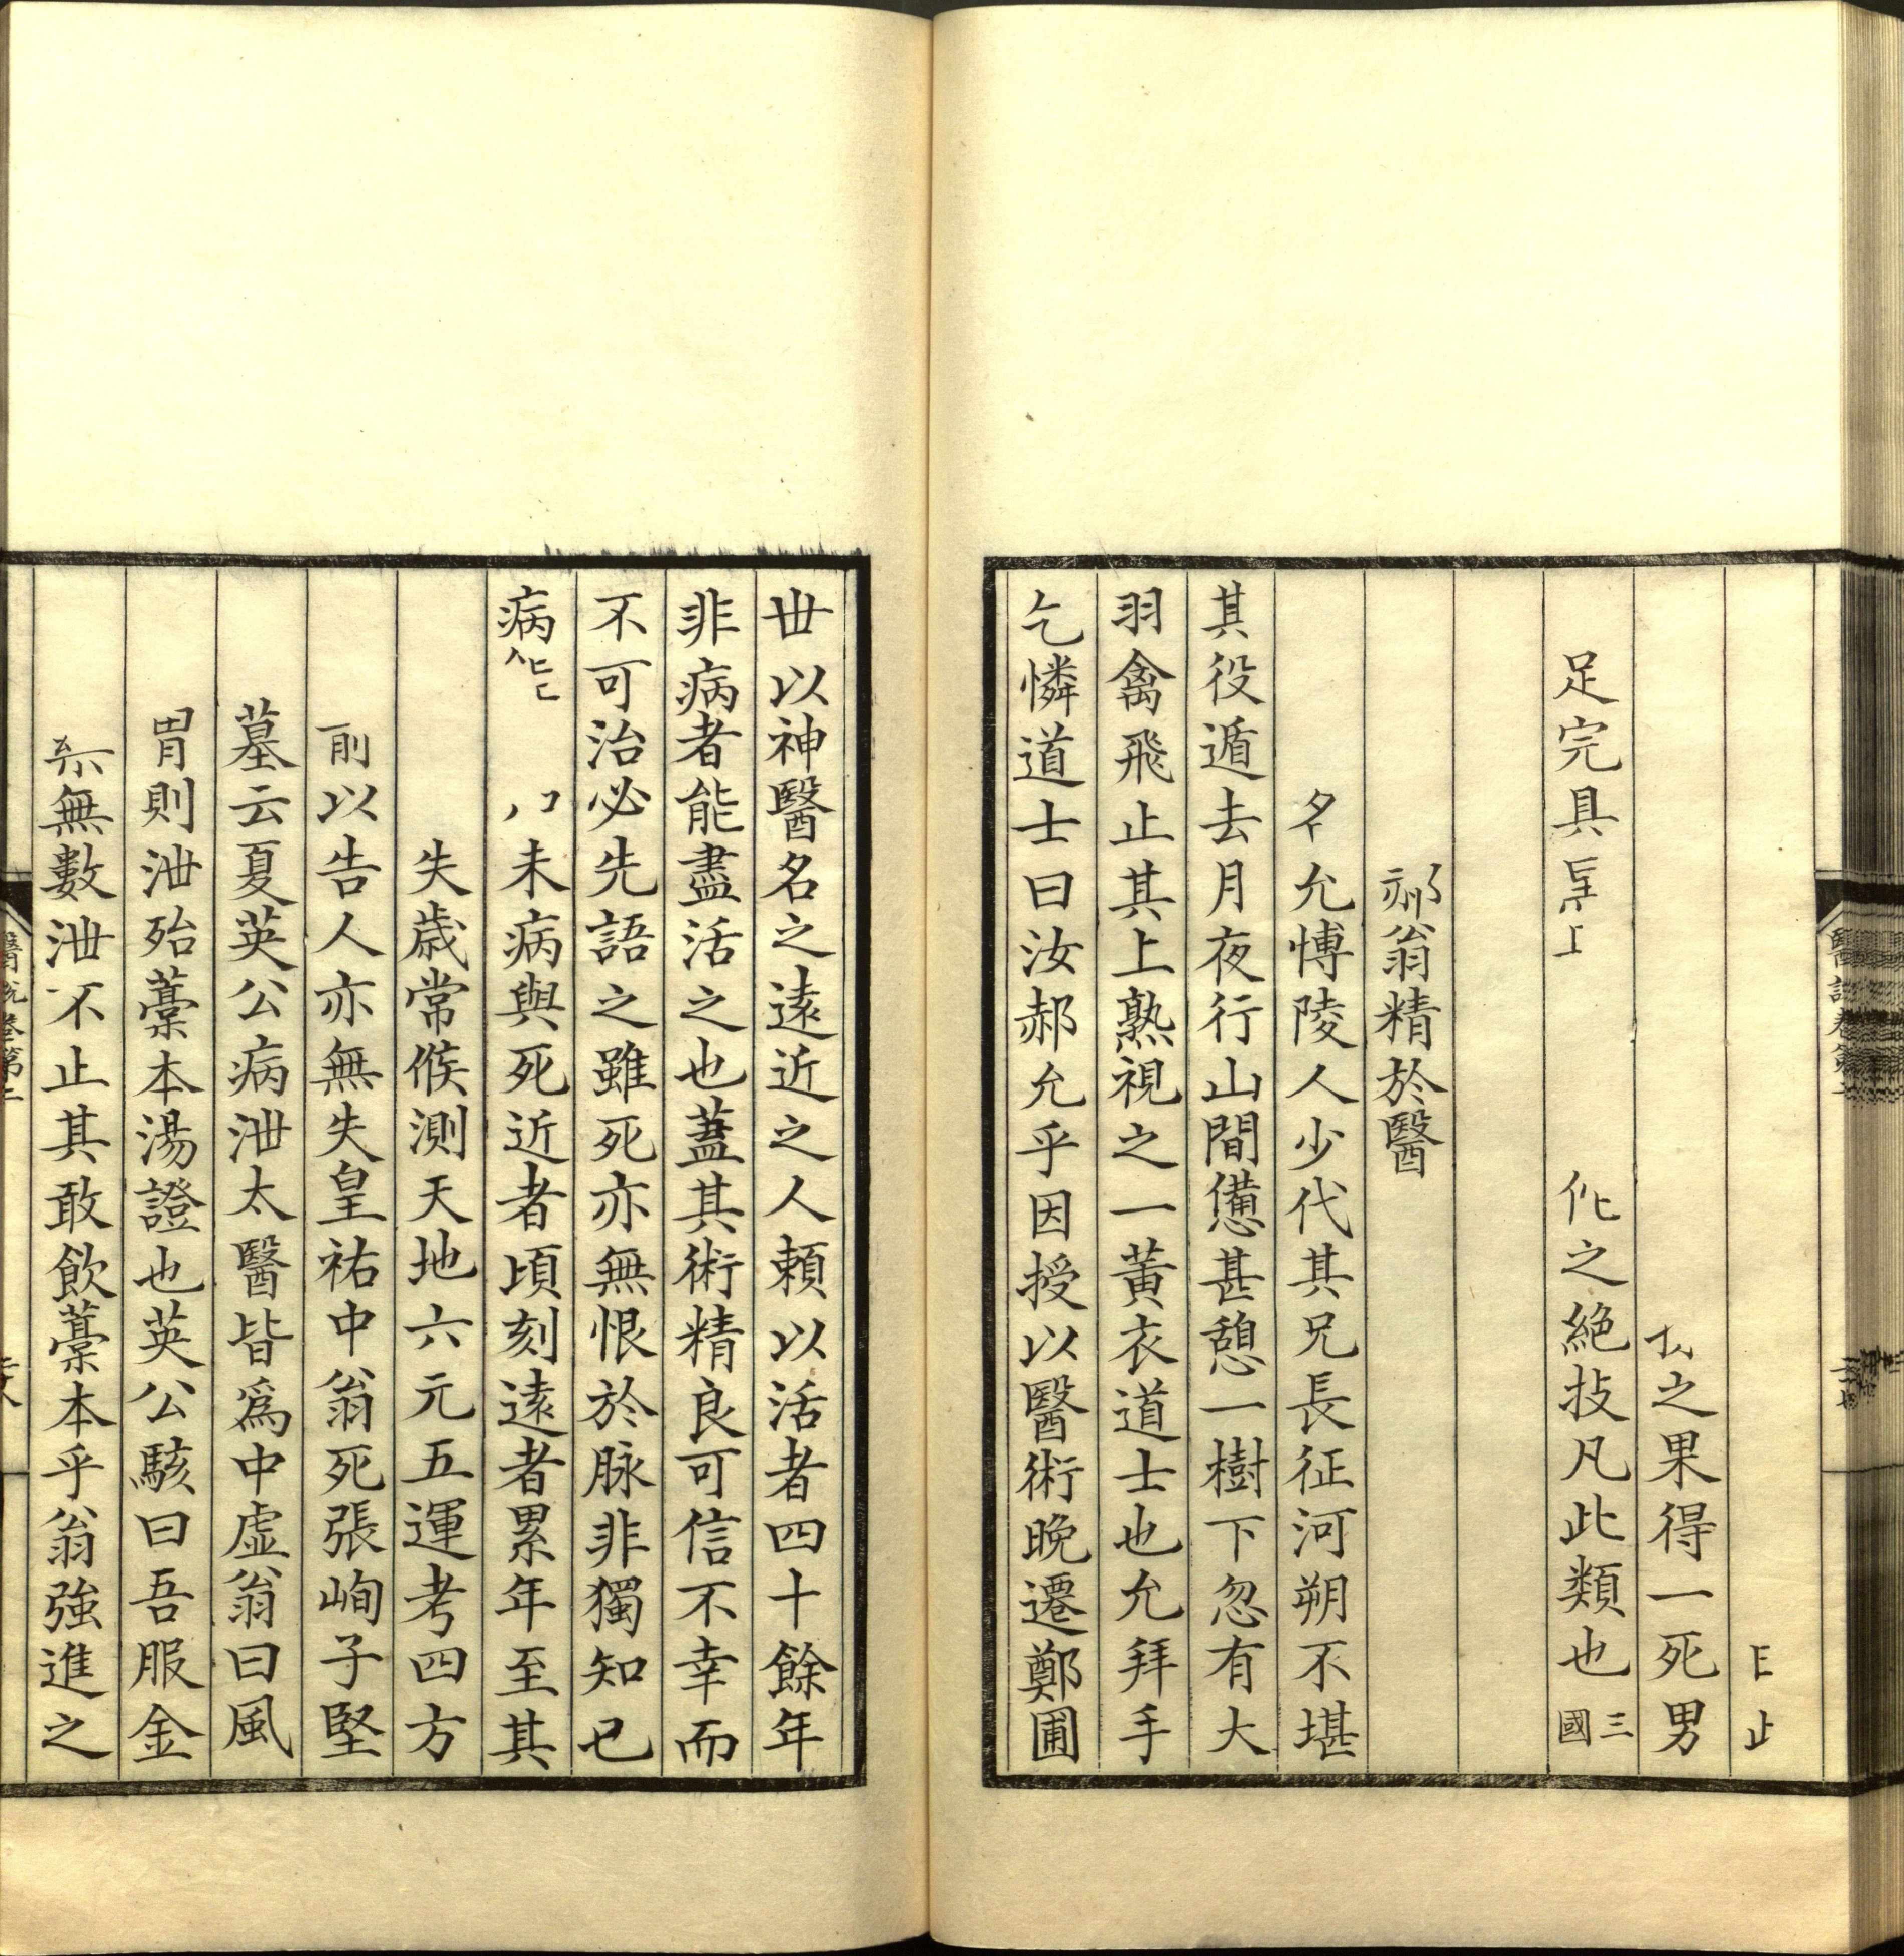 之果得一死男
足完具
之絶技凡此類也三國
翁精於醫
允博陵人少代其兄長征河朔不堪
其役遁去月夜行山間憊甚憩一樹下忽有大
羽禽飛止其上熟視之一黃衣道士也允拜手
乞憐道士曰汝郝允乎因授以醫術晚遷鄭圃
世以神醫名之遠近之人頼以活者四十餘年
非病者能盡活之也蓋其術精良可信不幸而
不可治必先語之雖死亦無恨於脉非獨知已
病未病與死近者頃刻遠者累年至其
失歳常候測天地六元五運考四方
以告人亦無失皇祐中翁死張峋子堅
墓云夏英公病泄太醫皆爲中虚翁曰風
胃則泄殆藁本湯證也英公駭曰吾服金
無數泄不止其敢飲藁本乎翁強進之